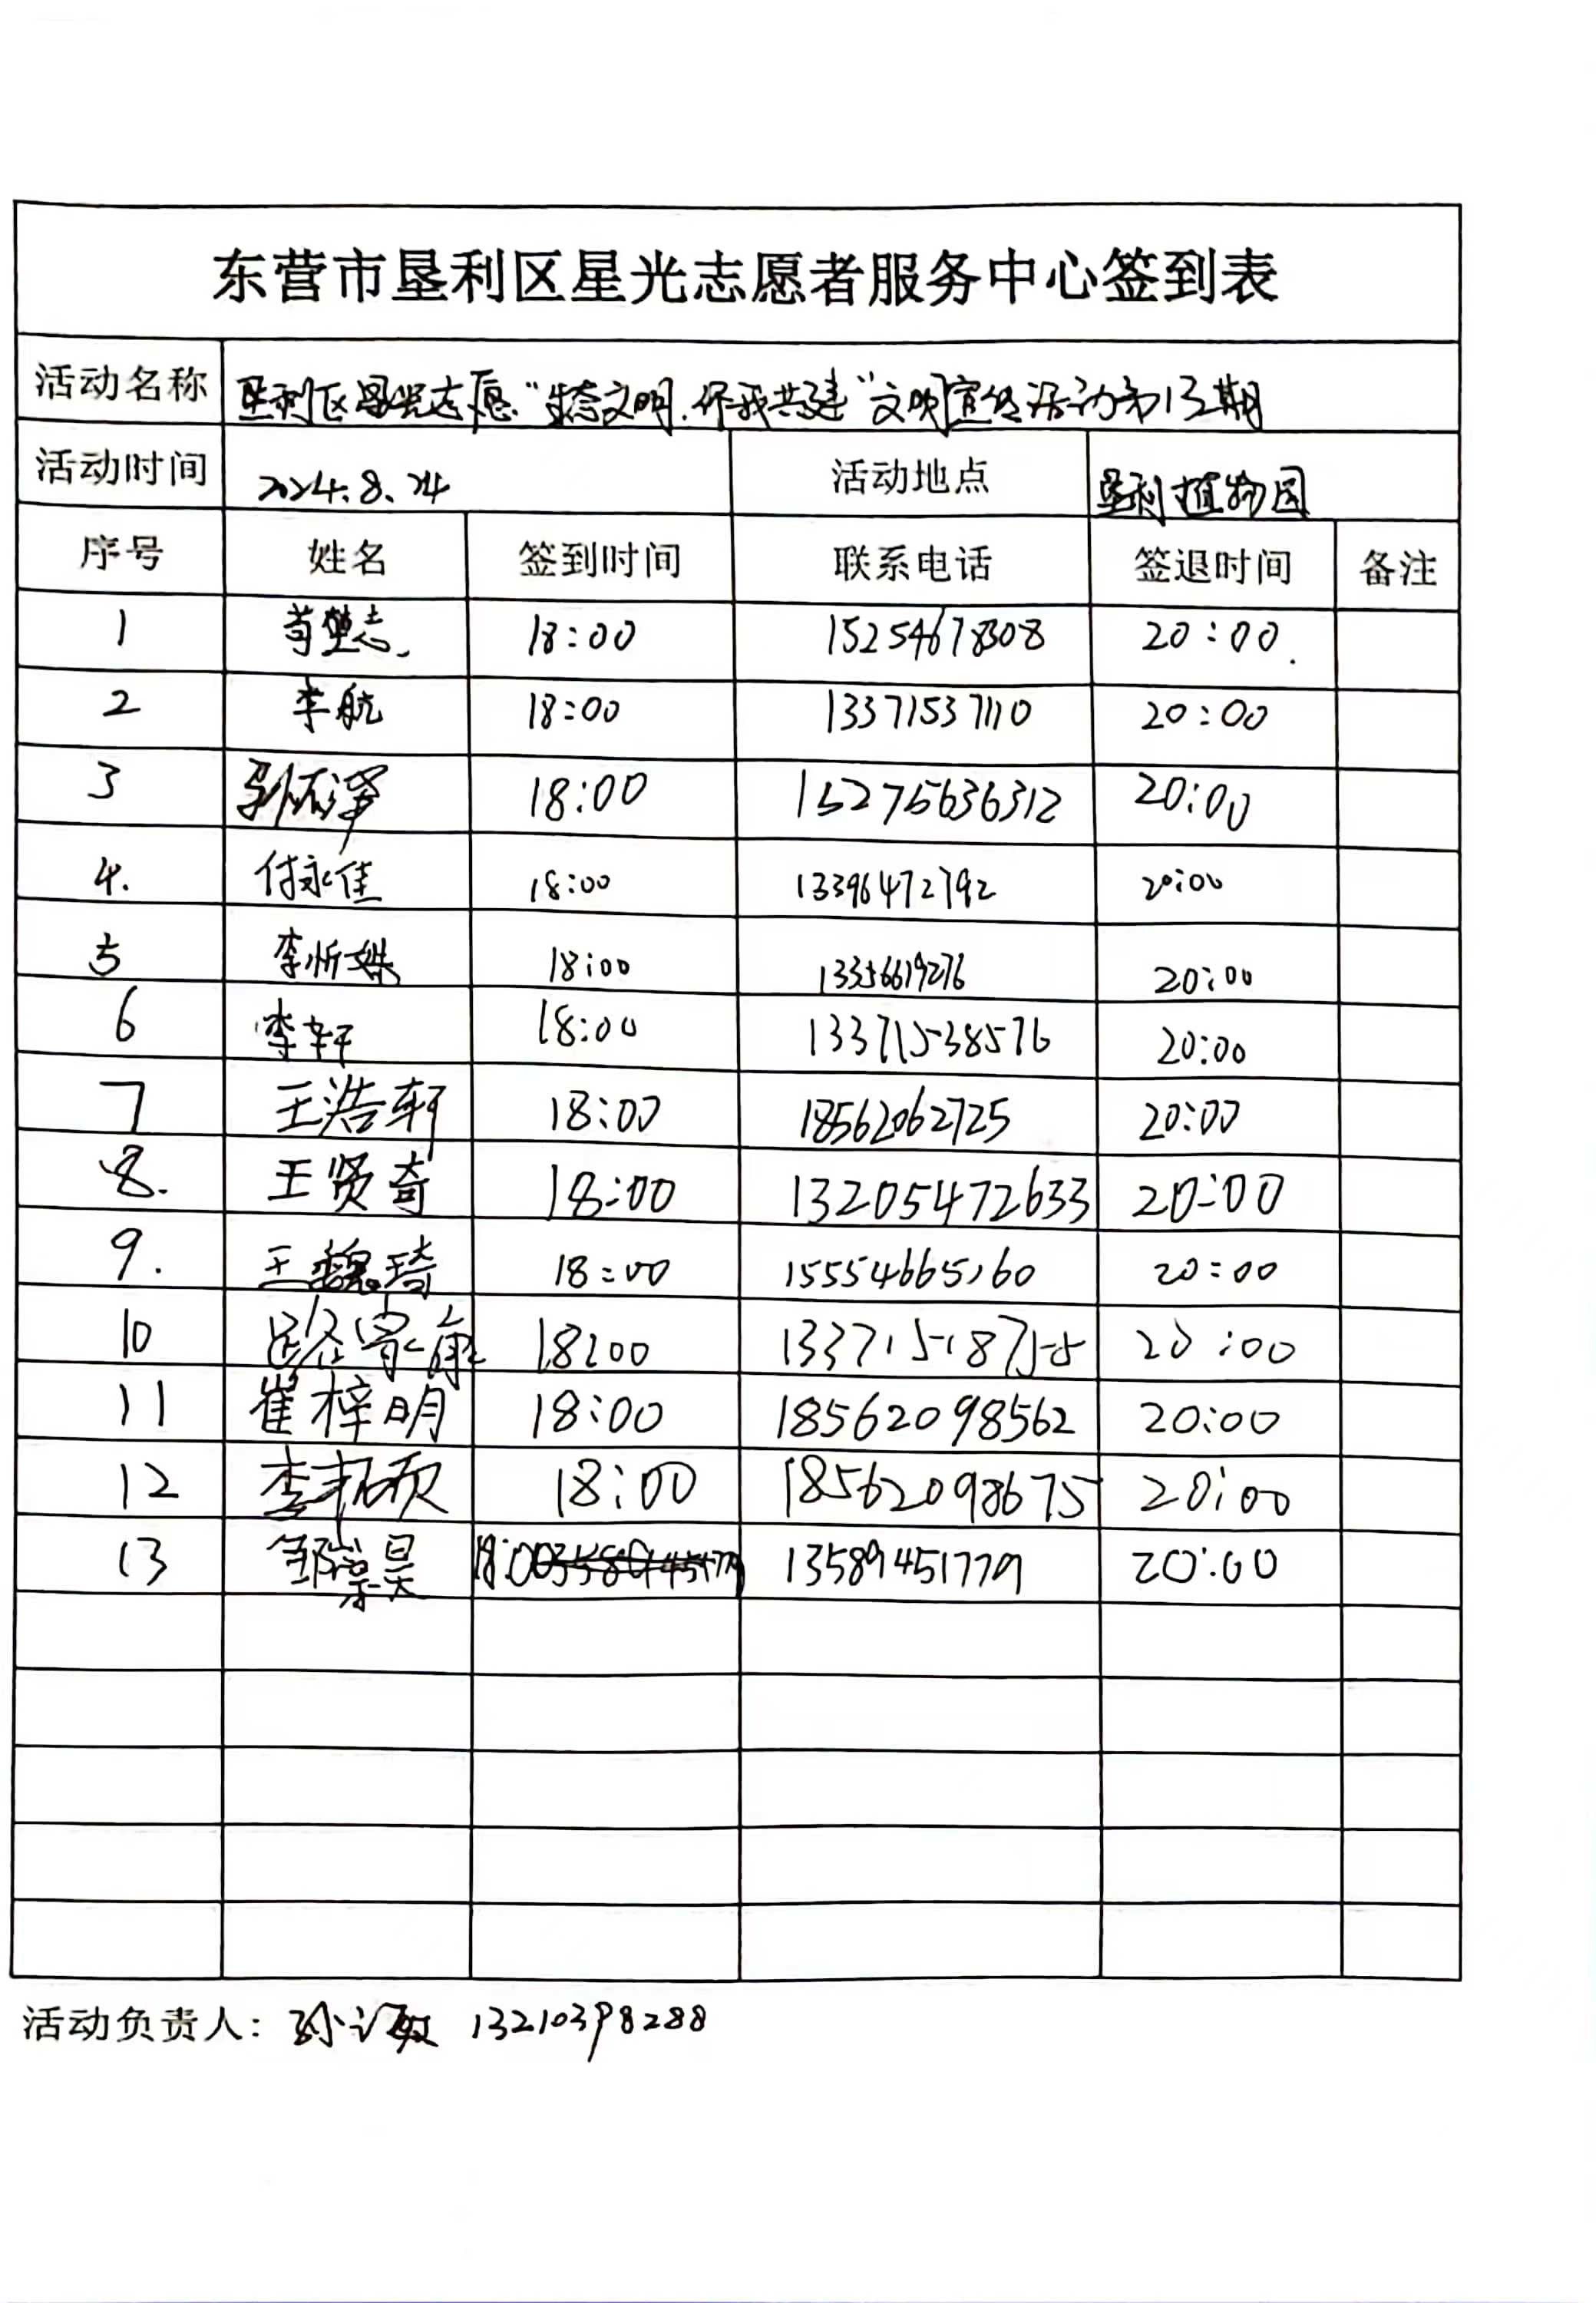 东营市垦利区星光志愿者服务中心签到表
活动名称 垦利区星光志愿“生态文明,你我共建”文明宣传活动第13期
活动时间 2024.8.24 活动地点 垦利植物园
序号 姓名 签到时间 联系电话 签退时间 备注
1 18:00 15254678308 20:00.
2 李航 18:00 13371537110 20:00
3 18:00 15275636312 20:00
4. 付永佳 18:00 13396472792 20:00
5 李忻姝 18:00 13356619276 20:00
6 李轩 18:00 13371538576 20:00
7 王浩轩 18:00 18562062725 20:00
8. 王贤奇 18:00 13205472633 20:00
9. 王魏琦 18:00 15554665160 20:00
10 路家康 18:00 13371518755 20:00
11 崔梓明 18:00 18562098562 20:00
12 李 硕 18:00 18562098675 20:00
13 邹崇昊 18:00 13589451779 20:00
活动负责人: 孙 敏 13210398288